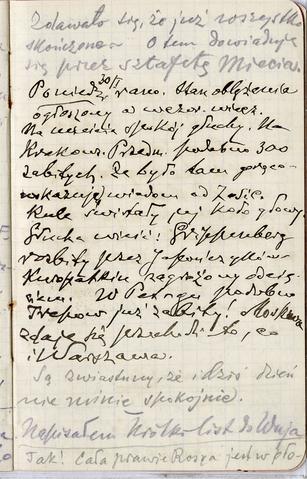 Zdawało się, że już wszystko
skończone. O tem dowiaduję
się przez sztafetę Miecia.
Poniedz. 30/I rano. Stan oblężenia
ogłoszony wczor. wiecz.
Na mieście spokój głuchy. Na
Krakow. Przedm. podobno 300
zabitych. Że było tam gorąco
wskazują wiadom od
Kule świstały mi koło głowy.
Głucha wieść! Grippenberg
rozbity przez Japończyków
Kuropatkin zagrożony
W Petrogr. podobno
Trepow już zabity! Moskwa
zdaje się przechodzi to, co
i Warszawa.
Są zwiastuny, że i dziś dzień
nie minie spokojnie.
Napisałem krótki list do Wuja
Tak! Cała prawie Rosya jest w pło-